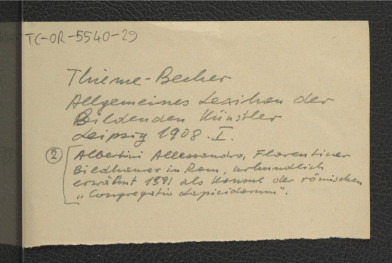 TC-OR-5540-29
Thieme-Becher
Allgemeines Lexikon der
Bildenden Künstler
Leipzig 1908. I.
② Albertini Allessandro, Florentiner
Bildhauer in Rom, urkundlich
erwähnt 1591 als Konsul der römischen
„Congregatio Lapicidarum".